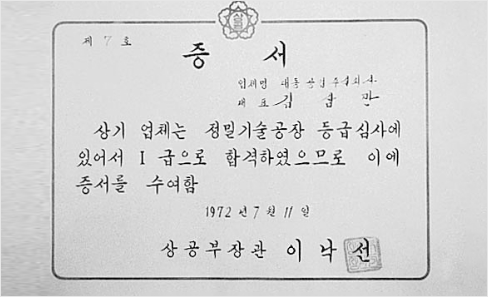 제 7 호
증 서
업체명 대동공업주식회사
대 표 김 삼 만
상기 업체는 정밀기술공장 등급심사에
있어서 I 급으로 합격하였으므로 이에
증서를 수여함
1972 년 7 월 11 일
상공부장관 이 낙 선